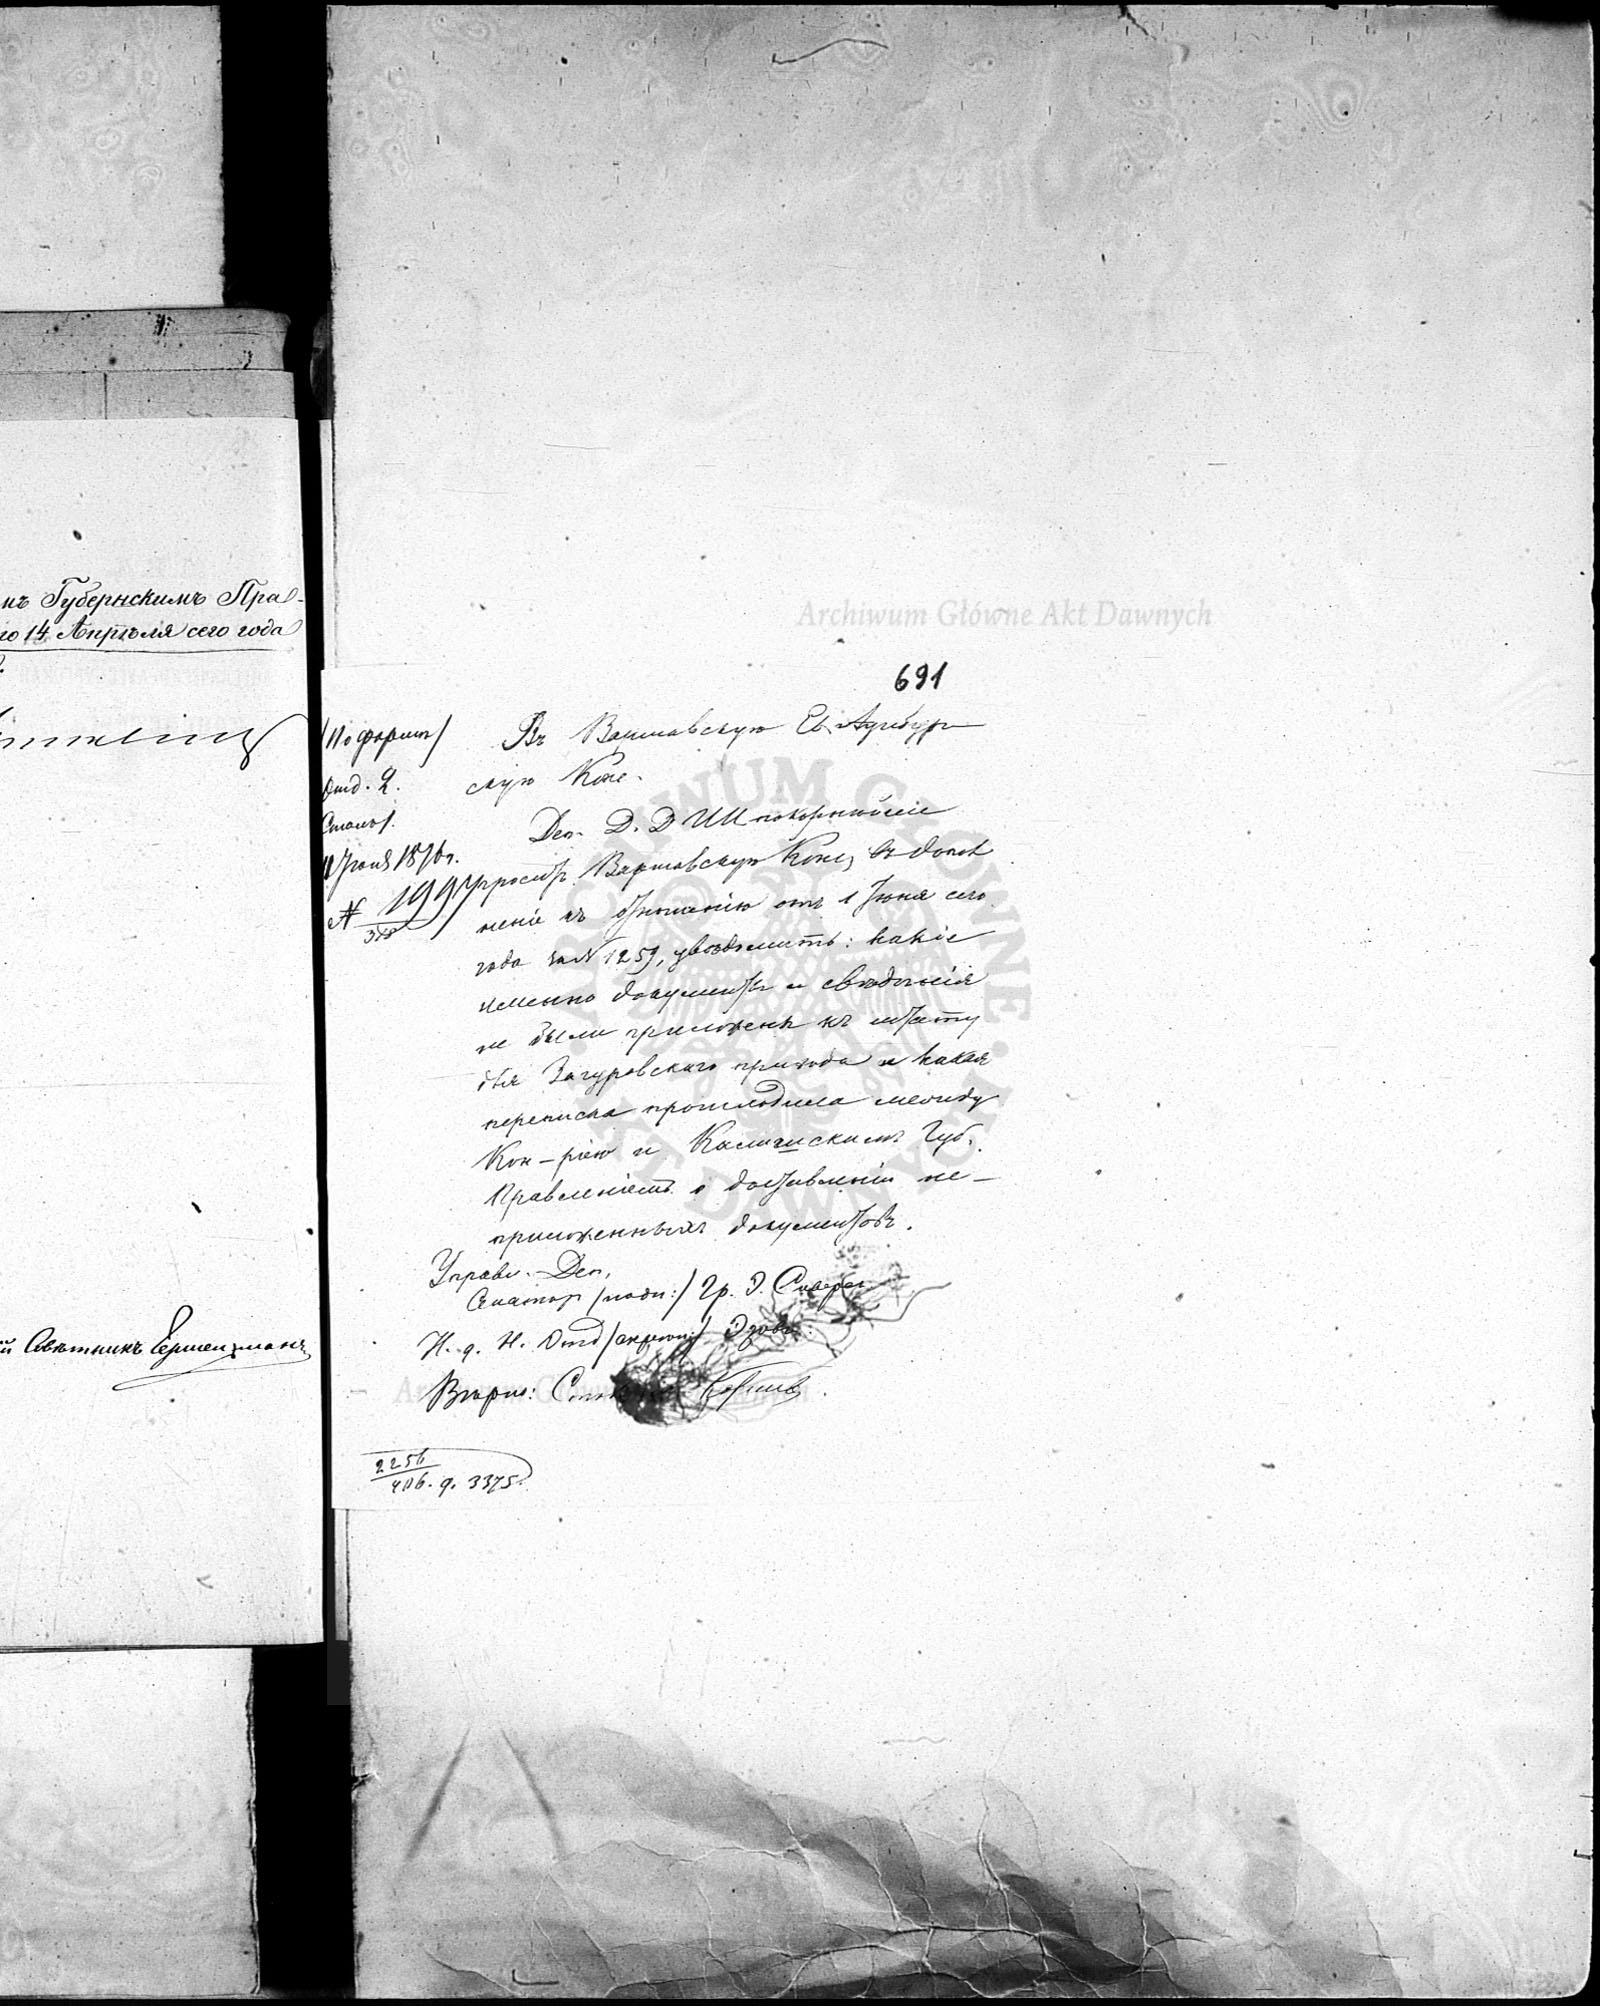 нъ Губернскимъ Пра-
го 14 Апрѣля сего года
й Совѣтникъ
Archiwum Główne Akt Dawnych
691
/По формѣ/
Отд. 2.
Столъ 1.
Іюня 1876 г.
№ 1997
Въ Варшавскую Ев. Аугсбург
скую Конс.
Деп. Д. Д. И И покорнѣйше
проситъ Варшавскую Конс, въ допол
неніе къ отношенію отъ 1 Іюня сего
года за № 1259, увѣдомить: какіе
именно документы и свѣдѣнія
не были приложены къ штату
для Загуровскаго прихода и какая
переписка происходила между
Кон-ріею и Калишскимъ Губ.
Правленіемъ о доставленіи не-
приложенныхъ документовъ.
Управл. Деп.
Сенаторъ /подп:/ Гр. Э. Сиверсъ
И. д. Н. Отд /скрѣпилъ/
Вѣрно:
2256
406. д. 3375.
ARCHIWUM GŁÓWNE AKT DAWNYCH